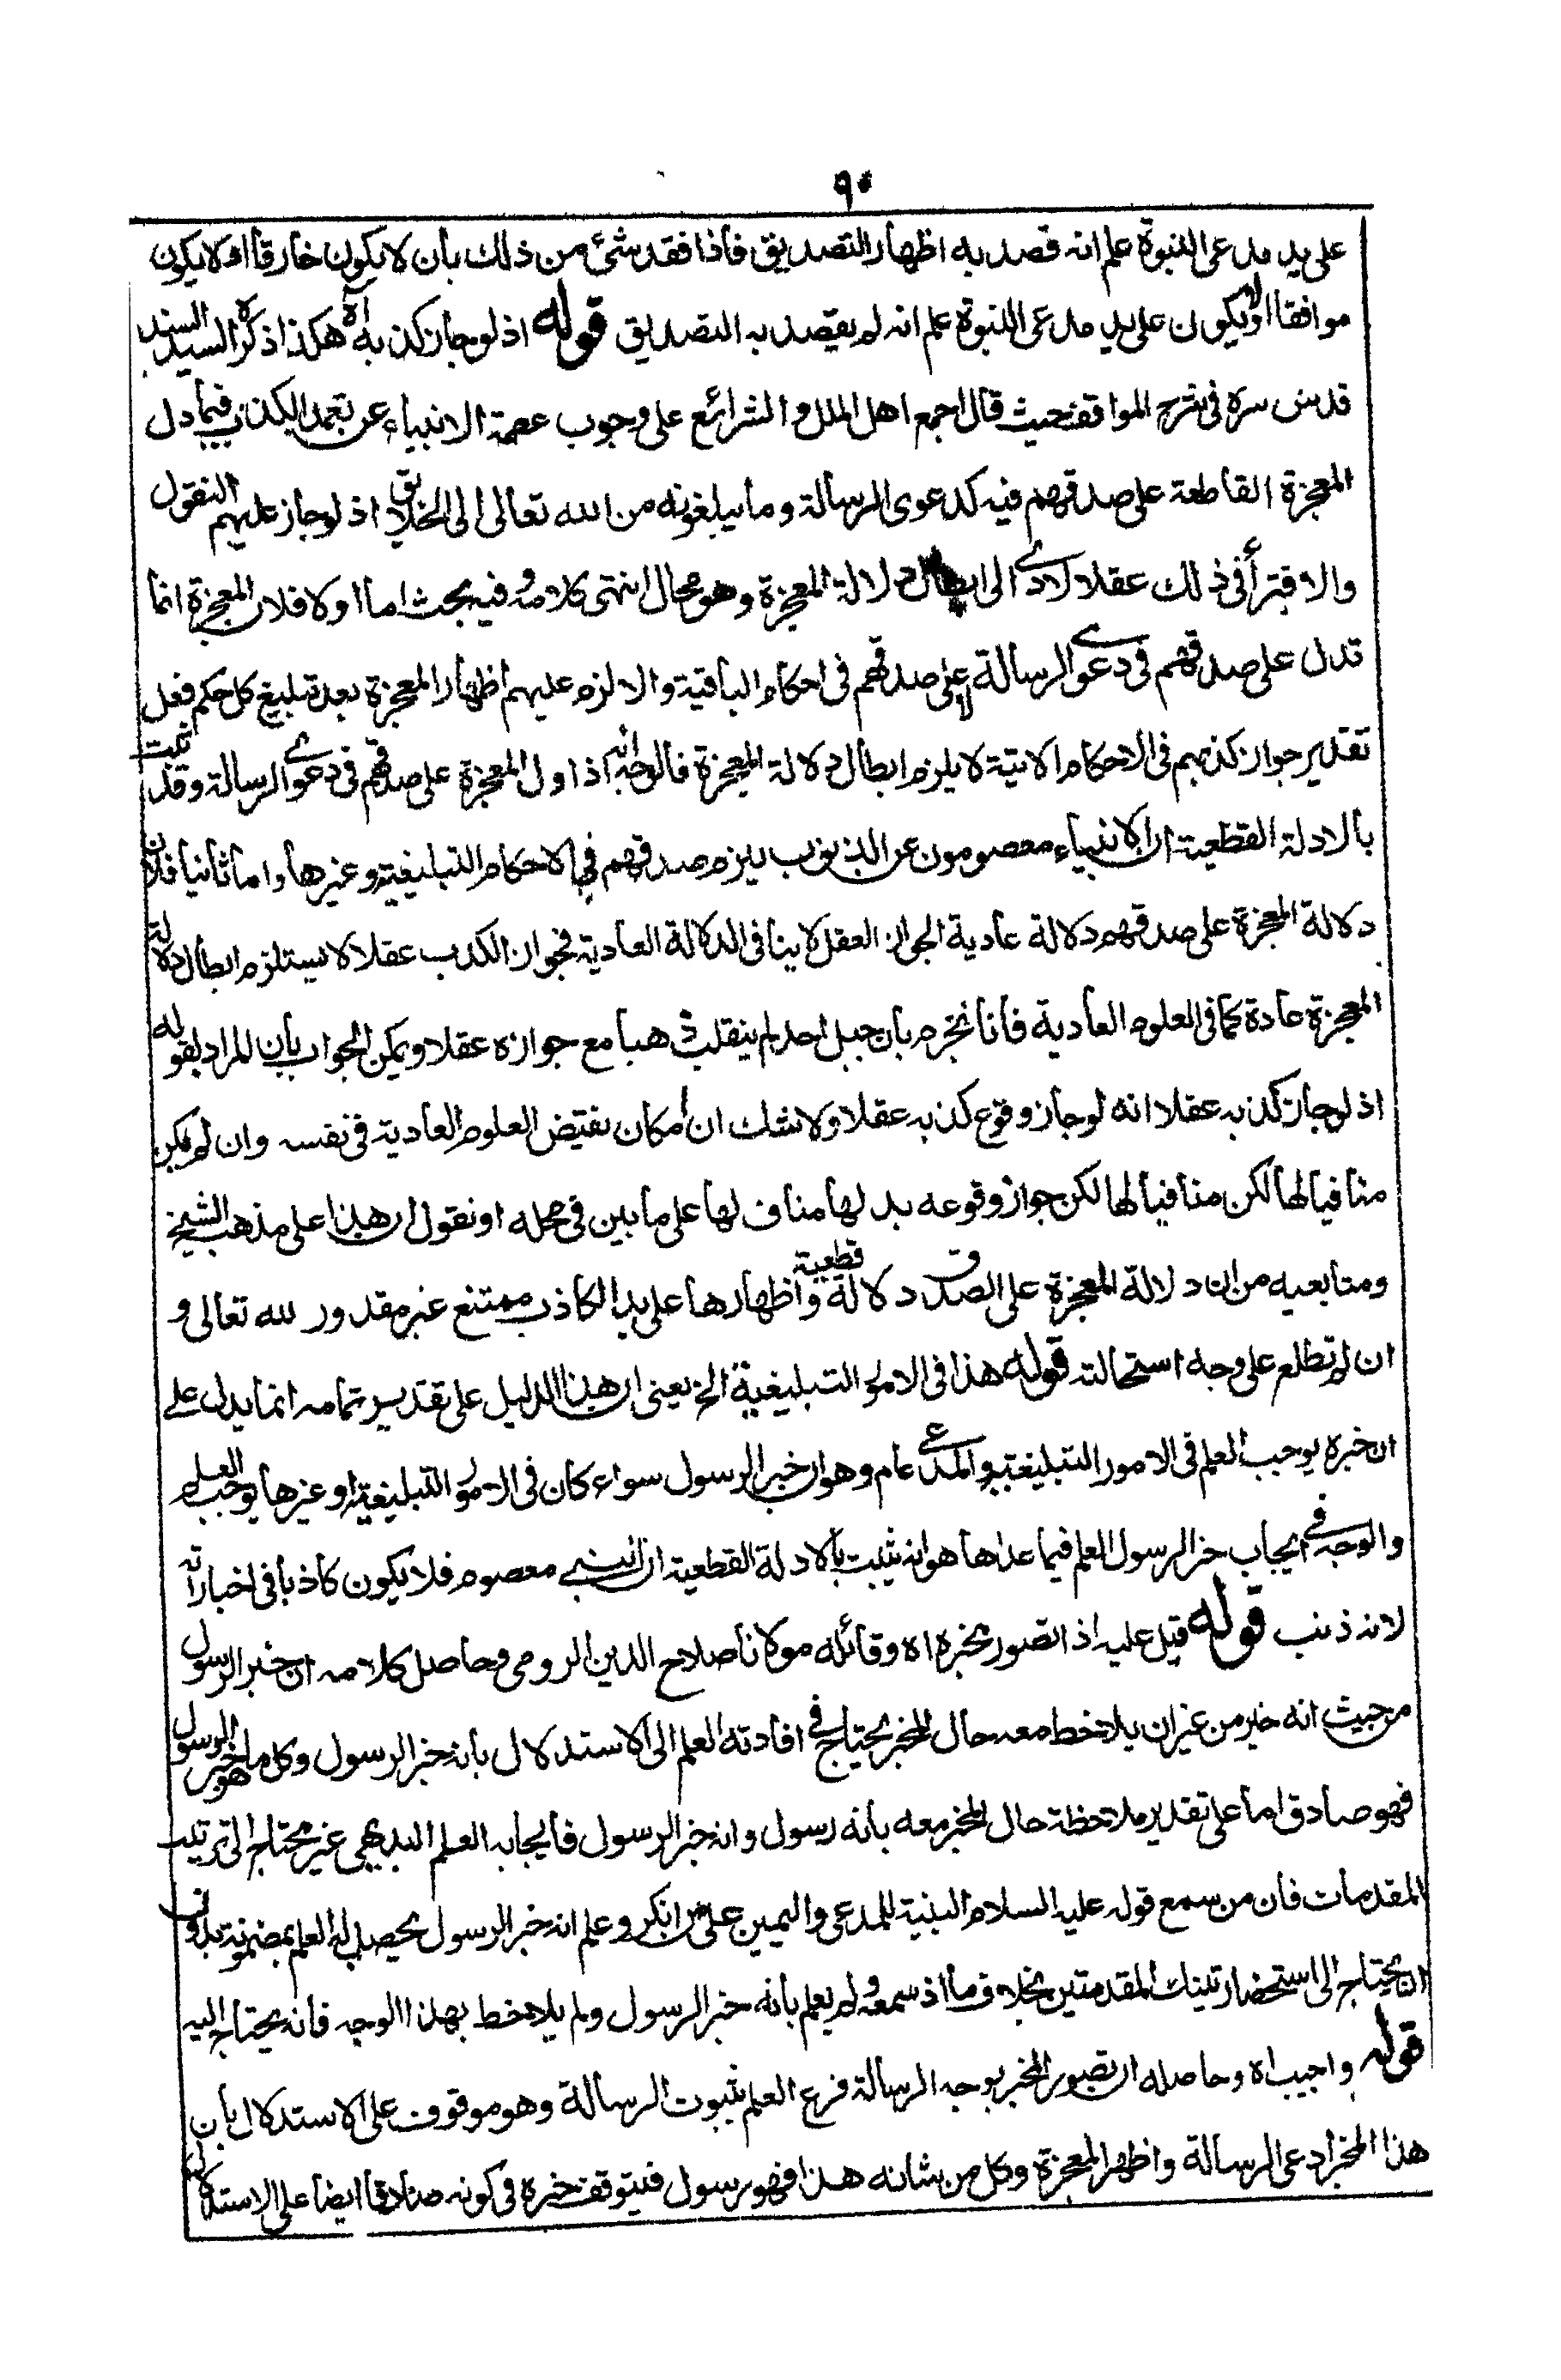 ٩٠
على يد مدعى النبوة علم انه قصد به اظهار التصديق فأذا فقد شئ من ذلك بأن لا يكون خارقأ او لا يكون
موافقأ او لا يكون على يد مدعى النبوة علم انه لم يقصد به التصديق قوله اذ لو جاز كذبه آه هكذا ذكره السيد السند
قدس سره فى شرح المواقف حيث قال اجمع اهل الملل و الشرائع على وجوب عصمة الانبياء عن تعمد الكذب فيما دل
المعجزة القاطعة على صدقهم فيه كدعوى الرسالة و ما يبلغونه من الله تعالى الى الخلايق اذ لو جاز عليهم التقول
والافترأ فى ذلك عقلا لادى الى ابطال دلالة المعجزة وهو محال انتهى كلامه و فيه بحث اما اولا فلان المعجزة انما
تدل على صدقهم فى دعوى الرسالة لا على صدقهم فى احكام الباقية والا لزم عليهم اظهار المعجزة بعد تبليغ كل حكم فعلى
تقدير جواز كذبهم فى الاحكام الاتية لا يلزم ابطال دلالة المعجزة فألوجه انه اذا دل المعجزة على صدقهم فى دعوى الرسالة وقد ثبت
بألادلة القطعية ان الانبياء معصومون عن الذنوب يلزم صدقهم فى الاحكام التبليغية و غيرها واما ثأنيا فلان
دلالة المعجزة على صدقهم دلالة عادية الجواز العقل لا ينافى الدلالة العادية فجواز الكذب عقلا لا يستلزم ابطأل دلالة
المعجزة عادة كما فى العلوم العأدية فأنا نجزم بأن جبل احد لم ينقلب ذهبا مع جوازه عقلا و يمكن الجواب بأن المراد بقوله
اذ لو جاز كذبه عقلا انه لو جاز وقوع كذبه عقلا ولا شك ان امكان نقيض العلوم العادية فى نفسه وان لم يكن
منافيا لها لكن منافيا لها لكن جواز وقوعه بدلها مناف لها على ما بين فى محله او نقول ان هذا على مذهب الشيخ
ومتابعيه من ان دلالة المعجزة على الصدق دلالة قطعية و اظهارها على يد الكاذب ممتنع غير مقدور لله تعالى و
ان لم تطلع على وجه استحالته قوله هذا فى الامور التبليغية الخ يعنى ان هذا الدليل على تقدير تمامه انما يدل على
ان خبره يوجب العلم فى الامور التبليغية و المدعى عام وهو ان خبر الرسول سواء كان فى الامور التبليغية او غيرها يوجب العلم
والوجه فى ايجاب خبر الرسول العلم فيما عداها هو انه يثبت بألادلة القطعية ان النبي معصوم فلا يكون كاذبا فى اخباراته
لانه ذنب قوله قيل عليه اذا تصور مخبره اه وقائله مولانا صلاح الدين الرومى وحاصل كلامه ان خبر الرسول
من حيث انه خبر من غير ان يلاحظ معه حال المخبر يحتاج فى افادته العلم الى الاستدلال بأنه خبر الرسول وكل ما هو خبر الرسول
فهو صادق اما على تقدير ملاحظة حال المخبر معه بأنه رسول وانه خبر الرسول فأيجابه العلم البديهى غير محتاج الى ترتيب
المقدمات فأن من سمع قوله عليه السلام البينة للمدعى واليمين على من انكر و علم انه خبر الرسول يحصل له العلم بمضمونه بدون
ان يحتاج الى استحضار تينك المقدمتين بخلاف ما اذ سمعه و لم يعلم بأنه خبر الرسول ولم يلاحظ بهذا الوجه فأنه يحتاج اليه
قوله و اجيب اه وحاصله ان تصور المخبر بوجه الرسالة فرع العلم بثبوت الرسالة وهو موقوف على الاستدلال بأن
هذا المخبر ادعى الرسالة واظهر المعجزة وكل من شانه هذا فهو رسول فيتوقف خبره فى كونه صادقأ ايضا على الاستدلال